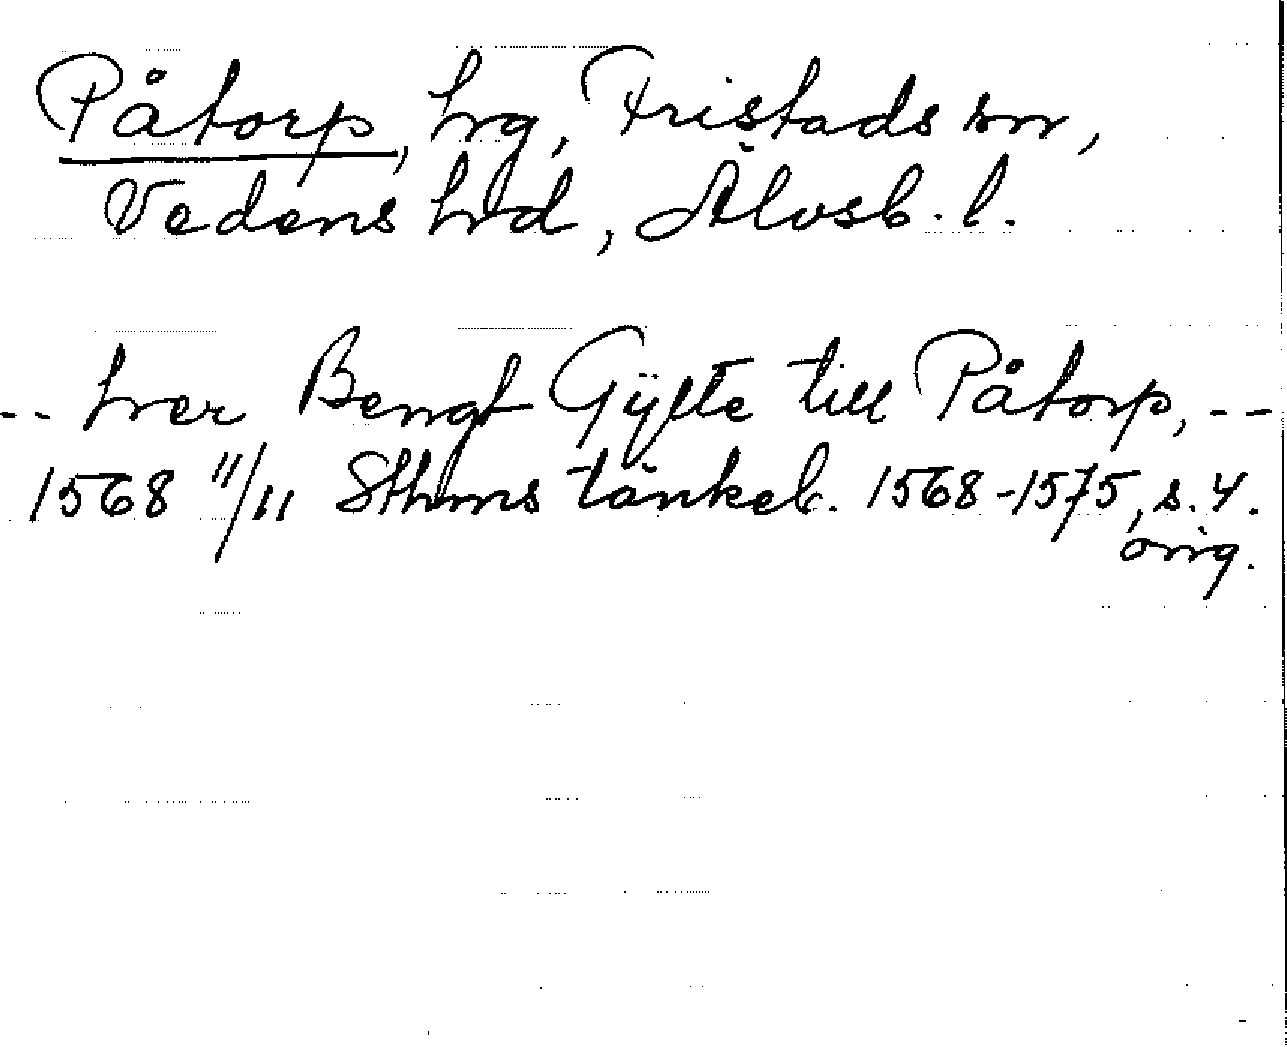 Påtorp, hrg, Fristads snr,
Vedens hrd, Älvsb. l.
-- her Bengt Gÿlte till Påtorp, --
1568 11/11 Sthms tänkeb. 1568-1575, s. 4.
orig.